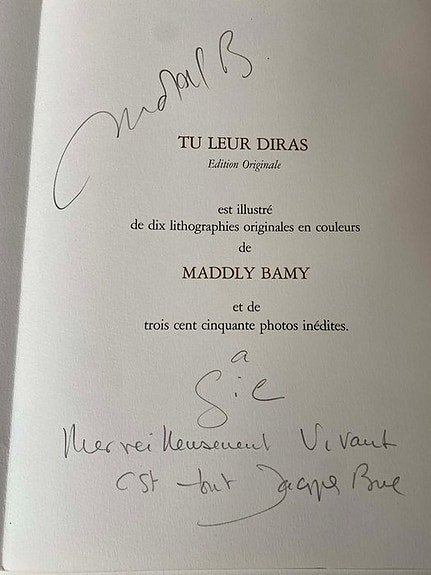 Maddly B.
TU LEUR DIRAS
Edition Originale
est illustré
de dix lithographies originales en couleurs
de
MADDLY BAMY
et de
trois cent cinquante photos inédites.
a
Merveilleusement Vivant
c'est tout Jacques